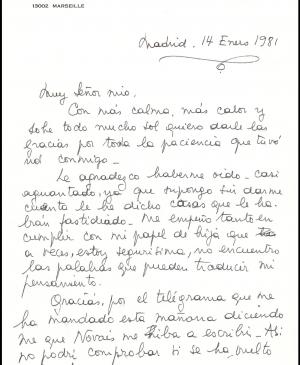 13002 MARSEILLE
Madrid. 14 Enero 1981
Muy Señor mio,
Con más calma, más calor y
sobre todo mucho sol quiero darle las
gracias por toda la paciencia que tuvo
vd conmigo_
Le agradezco haberme oido - casi
aguantado, ya que supongo sin darme
cuenta le he dicho cosas que le ha-
brán fastidiado_ Me empeño tanto en
cumplir con mi papel de hija que
a veces, estoy segurisima, no encuentro
las palabras que pueden traducir mi
pensamiento.
Gracias, por el telégrama que me
ha mandado esta mañana diciendo
me que Novais me iba a escribir_ Asi
no podré comprobar si se ha vuelto